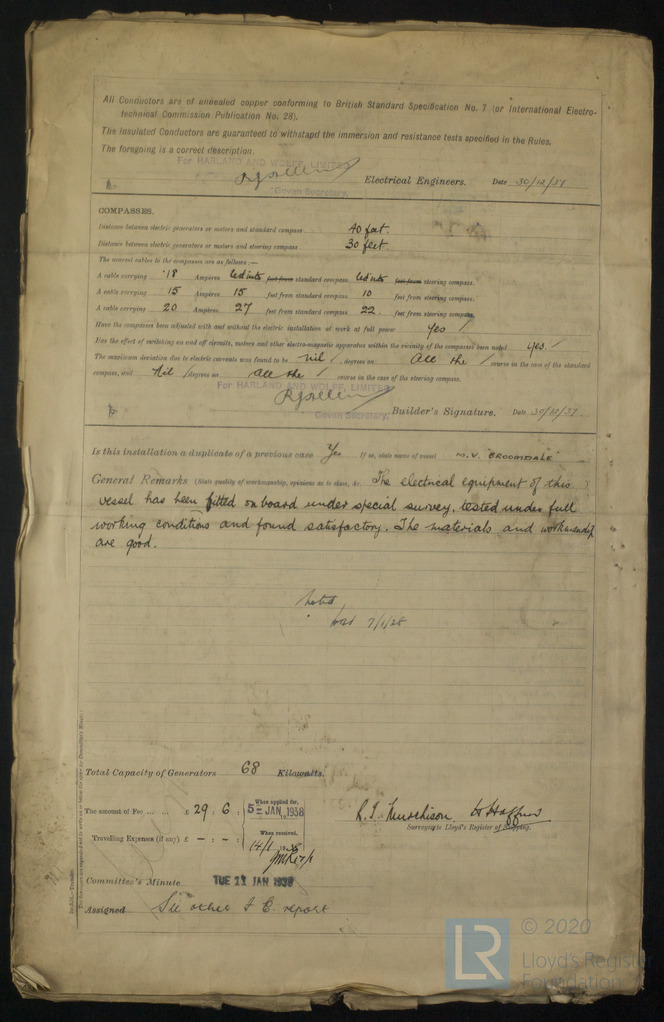 All Conductors are of annealed copper conforming to British Standard Specification No. 7 (or International Electro-
technical Commission Publication No. 28).
The Insulated Conductors are guaranteed to withstand the immersion and resistance tests specified in the Rules.
The foregoing is a correct description.
For HARLAND AND WOLFF, LIMITED
Electrical Engineers. Date 30/12/37
Govan Secretary.
COMPASSES.
Distance between electric generators or motors and standard compass 40 feet.
Distance between electric generators or motors and steering compass 30 feet.
The nearest cables to the compasses are as follows:—
A cable carrying .18 Ampères led into feet from standard compass led into feet from steering compass.
A cable carrying 15 Ampères 15 feet from standard compass 10 feet from steering compass.
A cable carrying 20 Ampères 27 feet from standard compass 22 feet from steering compass.
Have the compasses been adjusted with and without the electric installation at work at full power Yes /
Has the effect of switching on and off circuits, motors and other electro-magnetic apparatus within the vicinity of the compasses been noted yes. /
The maximum deviation due to electric currents was found to be nil / degrees on All the / course in the case of the standard
compass, and Nil / degrees on all the / course in the case of the steering compass.
For HARLAND AND WOLFF, LIMITED
Govan Secretary. Builder's Signature. Date 30/12/37.
Is this installation a duplicate of a previous case Yes If so, state name of vessel M.V. "BROOMDALE"
General Remarks (State quality of workmanship, opinions as to class, &c. The electrical equipment of this
vessel has been fitted on board under special survey, tested under full
working conditions and found satisfactory. The materials and workmanship
are good.
Noted
7/1/38
Total Capacity of Generators 68 Kilowatts.
The amount of Fee ... ... £ 29 : 6 : When applied for, 5 - JAN 1938
Travelling Expenses (if any) £ - : - : When received, 14/1 1938
R. J. Hutchison
Surveyor to Lloyd's Register of Shipping.
Committee's Minute TUE 11 JAN 1938
Assigned See other F.E. report
LR
© 2020
Lloyd's Register
Foundation